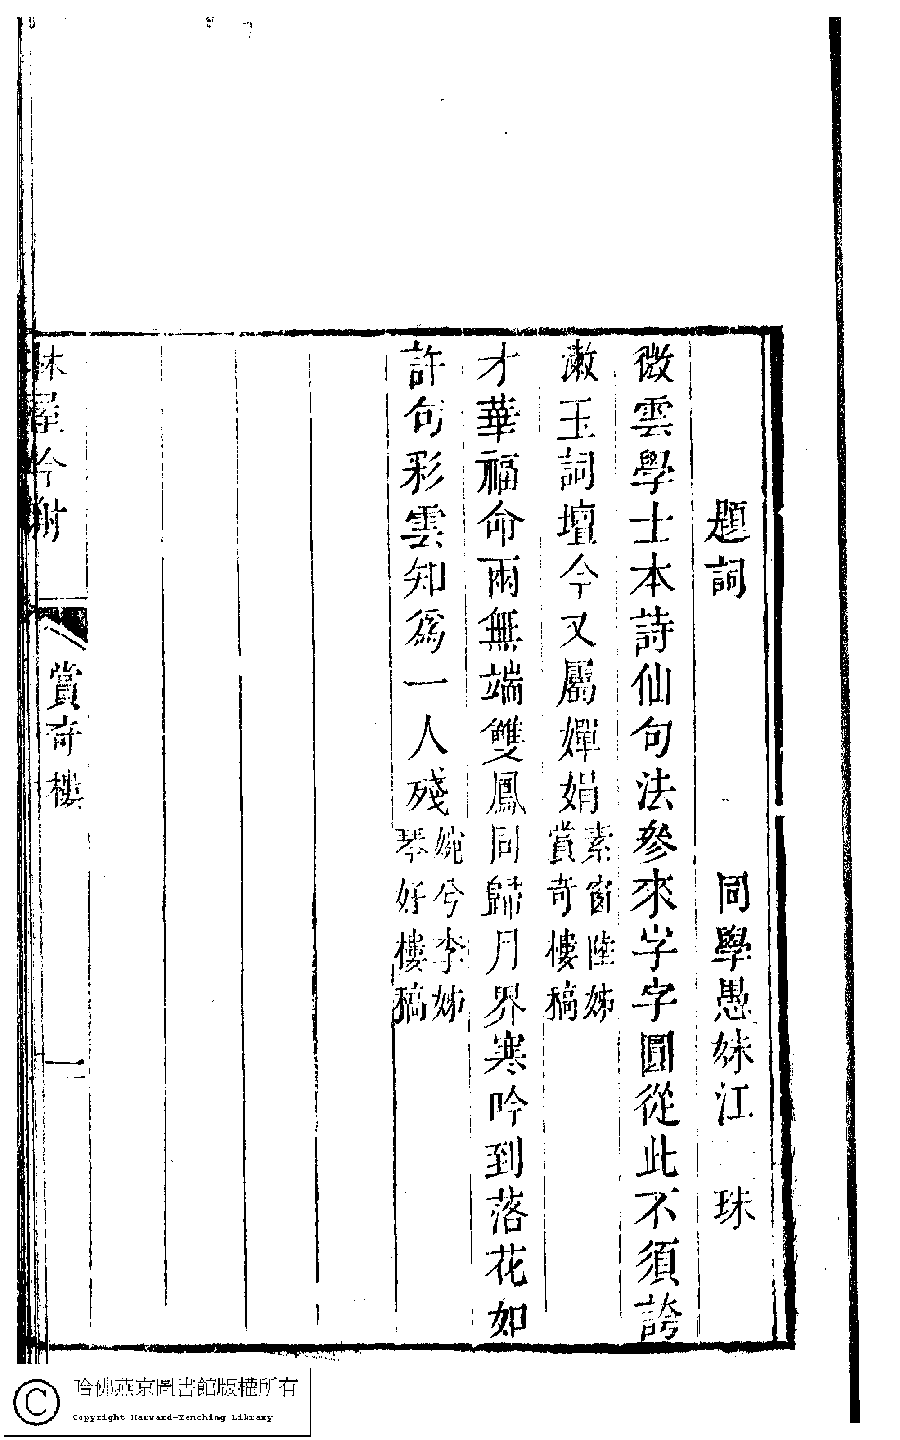 題詞　同學愚妹江珠
微雲學士本詩仙句法參來字字圓從此不須誇
漱玉詞壇今又屬嬋娟素窗陸姊賞奇樓稿
才華福命兩無端雙鳳同歸月界寒吟到落花如
許句彩雲知爲一人殘婉兮李姊琴好樓稿
林屋吟榭
賞奇樓
一
哈佛燕京圖書館版權所有
Copyright Harvard-Yenching Library